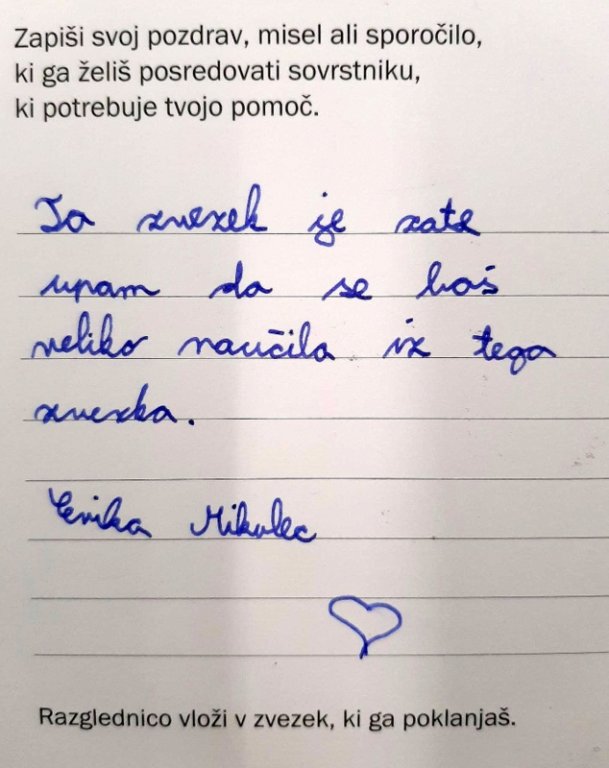 Zapiši svoj pozdrav, misel ali sporočilo,
ki ga želiš posredovati sovrstniku,
ki potrebuje tvojo pomoč.
Ta zvezek je zate
upam da se boš
veliko naučila iz tega
zvezka.
Enika Mikulec
Razglednico vloži v zvezek, ki ga poklanjaš.